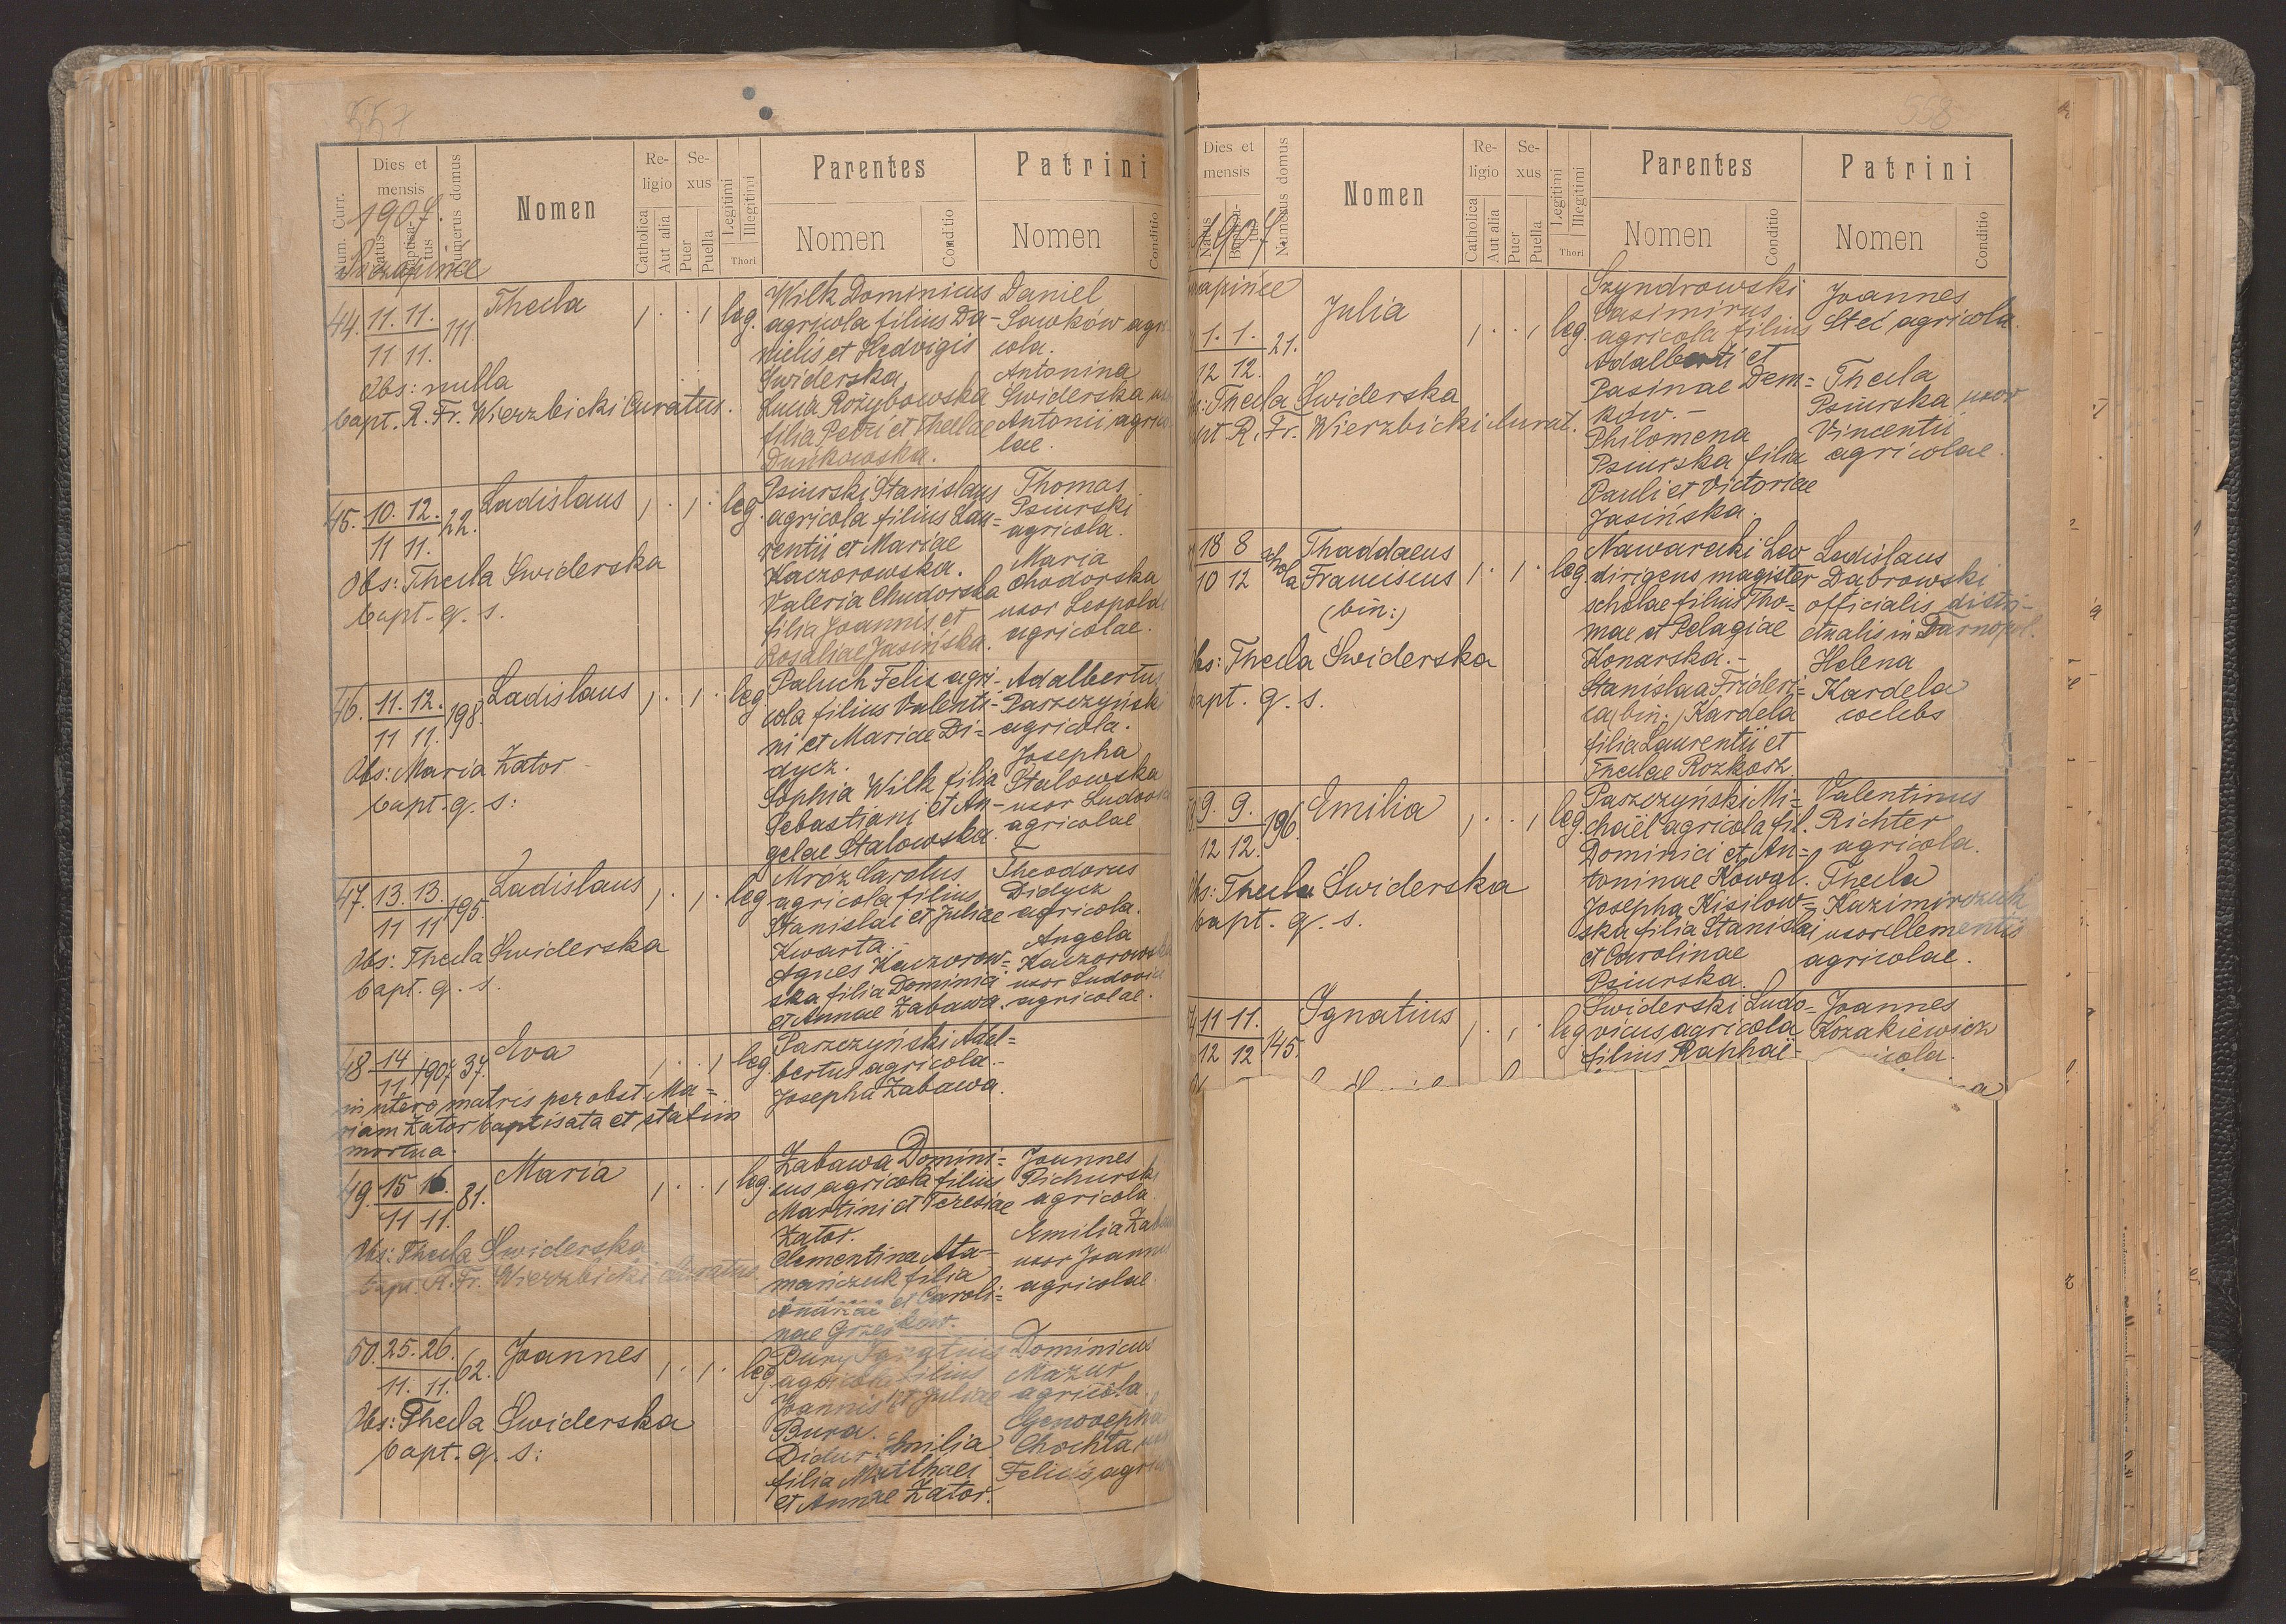 557
Num. Curr.
Dies et mensis
1907.
Natus
Baptisatus
Numerus domus
Nomen
Religio
Catholica
Aut alia
Sexus
Puer
Puella
Legitimi
Illegitimi
Thori
Parentes
Nomen
Conditio
Patrini
Nomen
Conditio
44. 11. 11. 111. Thecla 1 . . 1 leg.
11 11.
Obs: nulla
bapt. R. Fr. Wierzbicki Curatus.
Wilk Dominicus
agricola filius Da-
nielis et Hedvigis
Swiderska
Lucia Rożybowska
filia Petri et Theclae
Dunkowska.
Daniel
Sawków agri
cola.
Antonina
Swiderska
Antonii agrico
lae.
45. 10. 12. 22. Ladislaus 1 . 1 . leg.
11 11.
Obs: Thecla Swiderska
bapt. q. s.
Psiurski Stanislaus
agricola filius Lau=
rentii et Mariae
Kaczorowska.
Valeria Chudorska
filia Joannis et
Rosaliae Jasińska.
Thomas
Psiurski
agricola.
Maria
Chodorska
uxor Leopoldi
agricolae.
46. 11. 12. 198. Ladislaus 1 . 1 . leg.
11 11.
Obs: Maria Zator
bapt. q. s:
Paluch Felix agri-
cola filius Valenti-
ni et Mariae Di=
dycz.
Sophia Wilk filia
Sebastiani et An-
gelae Stalowska.
Adalbertus
Paszczyński
agricola.
Josepha
Stalowska
uxor Ludovi
agricolae
47. 13. 13. 195. Ladislaus 1 . 1 . leg
11 11
Obs: Thecla Swiderska
bapt. q. s.
Mróz Carolus
agricola filius
Stanislai et Juliae
Kwarta.-
Agnes Kaczorow=
ska filia Dominici
et Annae Zabawa.
Theodorus
Didycz
agricola.
Angela
Kaczorowska
uxor Ludovici
agricolae.
48 14 1907 37. Eva 1 . . 1 leg.
11
in utero matris per obst. Ma=
riam Zator baptisata et statim
mortua.
Paszczyński Adal=
bertus agricola.-
Josepha Zabawa.
49. 15 16. 81. Maria 1 . . 1 leg.
11 11.
Obs: Thecla Swiderska
bapt. R. Fr. Wierzbicki Curatus
Zabawa Domini=
cus agricola filius
Martini et Teresiae
Zator.
Clementina Ata-
mańczuk filia
et Caroli=
nae
Joannes
Pichurski
agricola
Emilia
uxor Joannis
agricolae
50. 25. 26. 62. Joannes 1 . 1 . leg
11. 11.
Obs: Thecla Swiderska
bapt. q. s:
Bury Ignatius
agricola filius
Joannis et Juliae
Bura.
Didur Emilia
filia Matthaei
et Annae Zator.
Dominicus
Mazur
agricola.
Genovepha
Chochta
Felicis
558
Dies et mensis
1907.
Numerus domus
Nomen
Religio
Catholica
Aut alia
Sexus
Puer
Puella
Legitimi
Illegitimi
Thori
Parentes
Nomen
Conditio
Patrini
Nomen
Conditio
1. 1. 21. Julia 1 . . 1 leg
12 12.
Thecla Swiderska
R. Fr. Wierzbicki Curat.
Szyndrowski
Casimirus
agricola filius
Adalberti et
Pasinae Dem=
ków. -
Philomena
Psiurska filia
Pauli et Victoriae
Jasińska.
Joannes
Steć agricola.
Thecla
Psiurska uxor
Vincentii
agricolae.
18 8 schola Thaddaeus 1 . 1 . leg.
10 12 Franciscus
(bin:)
Obs: Thecla Swiderska
bapt. q. s.
Nawarecki Leo
dirigens magister
scholae filius Tho=
mae et Pelagiae
Konarska.-
Stanislaa Frideri=
ca (bin:) Kardela
filia Laurentii et
Theclae Rozkosz
Ladislaus
Dabrowski
officialis distri-
ctualis in Tarnopol.
Helena
Kardela
coelebs
9. 9. 196. Emilia 1 . . 1 leg.
12 12.
Obs: Thecla Swiderska
bapt. q. s.
Paszczyński Mi=
chaël agricola fil.
Dominici et An=
toninae Kowal.
Josepha Kisilow=
ska filia Stanislai
et Carolinae
Psiurska.
Valentinus
Richter
agricola.
Thecla
Kazimirczuk
uxor Clementis
agricolae.
11 11. 145. Ignatius 1 . 1 . leg
12 12
Swiderski Ludo=
vicus agricola
filius Raphaë-
Joannes
Kozakiewicz